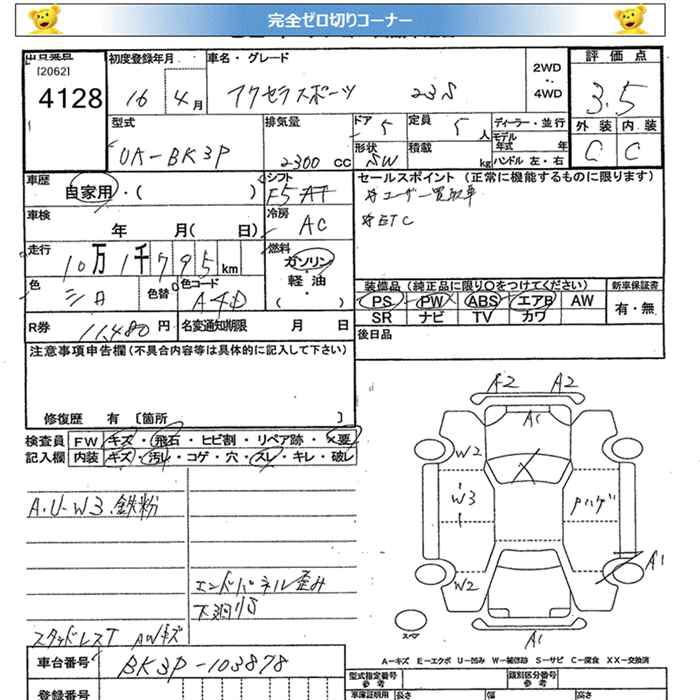 完全ゼロ切りコーナー
出品番号
[2062]
4128
初度登録年月
16 4月
車名・グレード
アクセラスポーツ 23S
2WD
4WD
評価点
3.5
外装 内装
C C
型式
UA-BK3P
排気量
2300 cc
ドア 5
形状 SW
定員 5人
積載 kg
ディーラー・並行
モデル年式 年
ハンドル 左・右
車歴
自家用・( )
シフト
F5 AT
セールスポイント (正常に機能するものに限ります)
*ユーザー買取車
*ETC
車検
年 月( 日)
冷房
AC
走行
10万1千795km
燃料
ガソリン・軽油・( )
色
シロ
色替
色コード
A4D
装備品 (純正品に限り○をつけてください)
PS PW ABS エアB AW
SR ナビ TV カワ
新車保証書
有・無
R券 11,480円
名変通知期限 月 日
後日品
注意事項申告欄(不具合内容等は具体的に記入して下さい)
修復歴 有 [箇所 ]
検査員記入欄
FW キズ・飛石・ヒビ割・リペア跡・×要
内装 キズ・汚レ・コゲ・穴・スレ・キレ・破レ
A・U-W3 鉄粉
エンドパネル歪み
下廻りS
スタッドレスT AWキズ
A2 A2
A1
W2
X
W3
Pハゲ
W2
A1
A1
スペア
A-キズ E-エクボ U-凹み W-補修跡 S-サビ C-腐食 XX-交換済
車台番号
BK3P-103878
登録番号
型式指定番号
参考
類別区分番号
参考
車庫証明用 長さ 幅 高さ